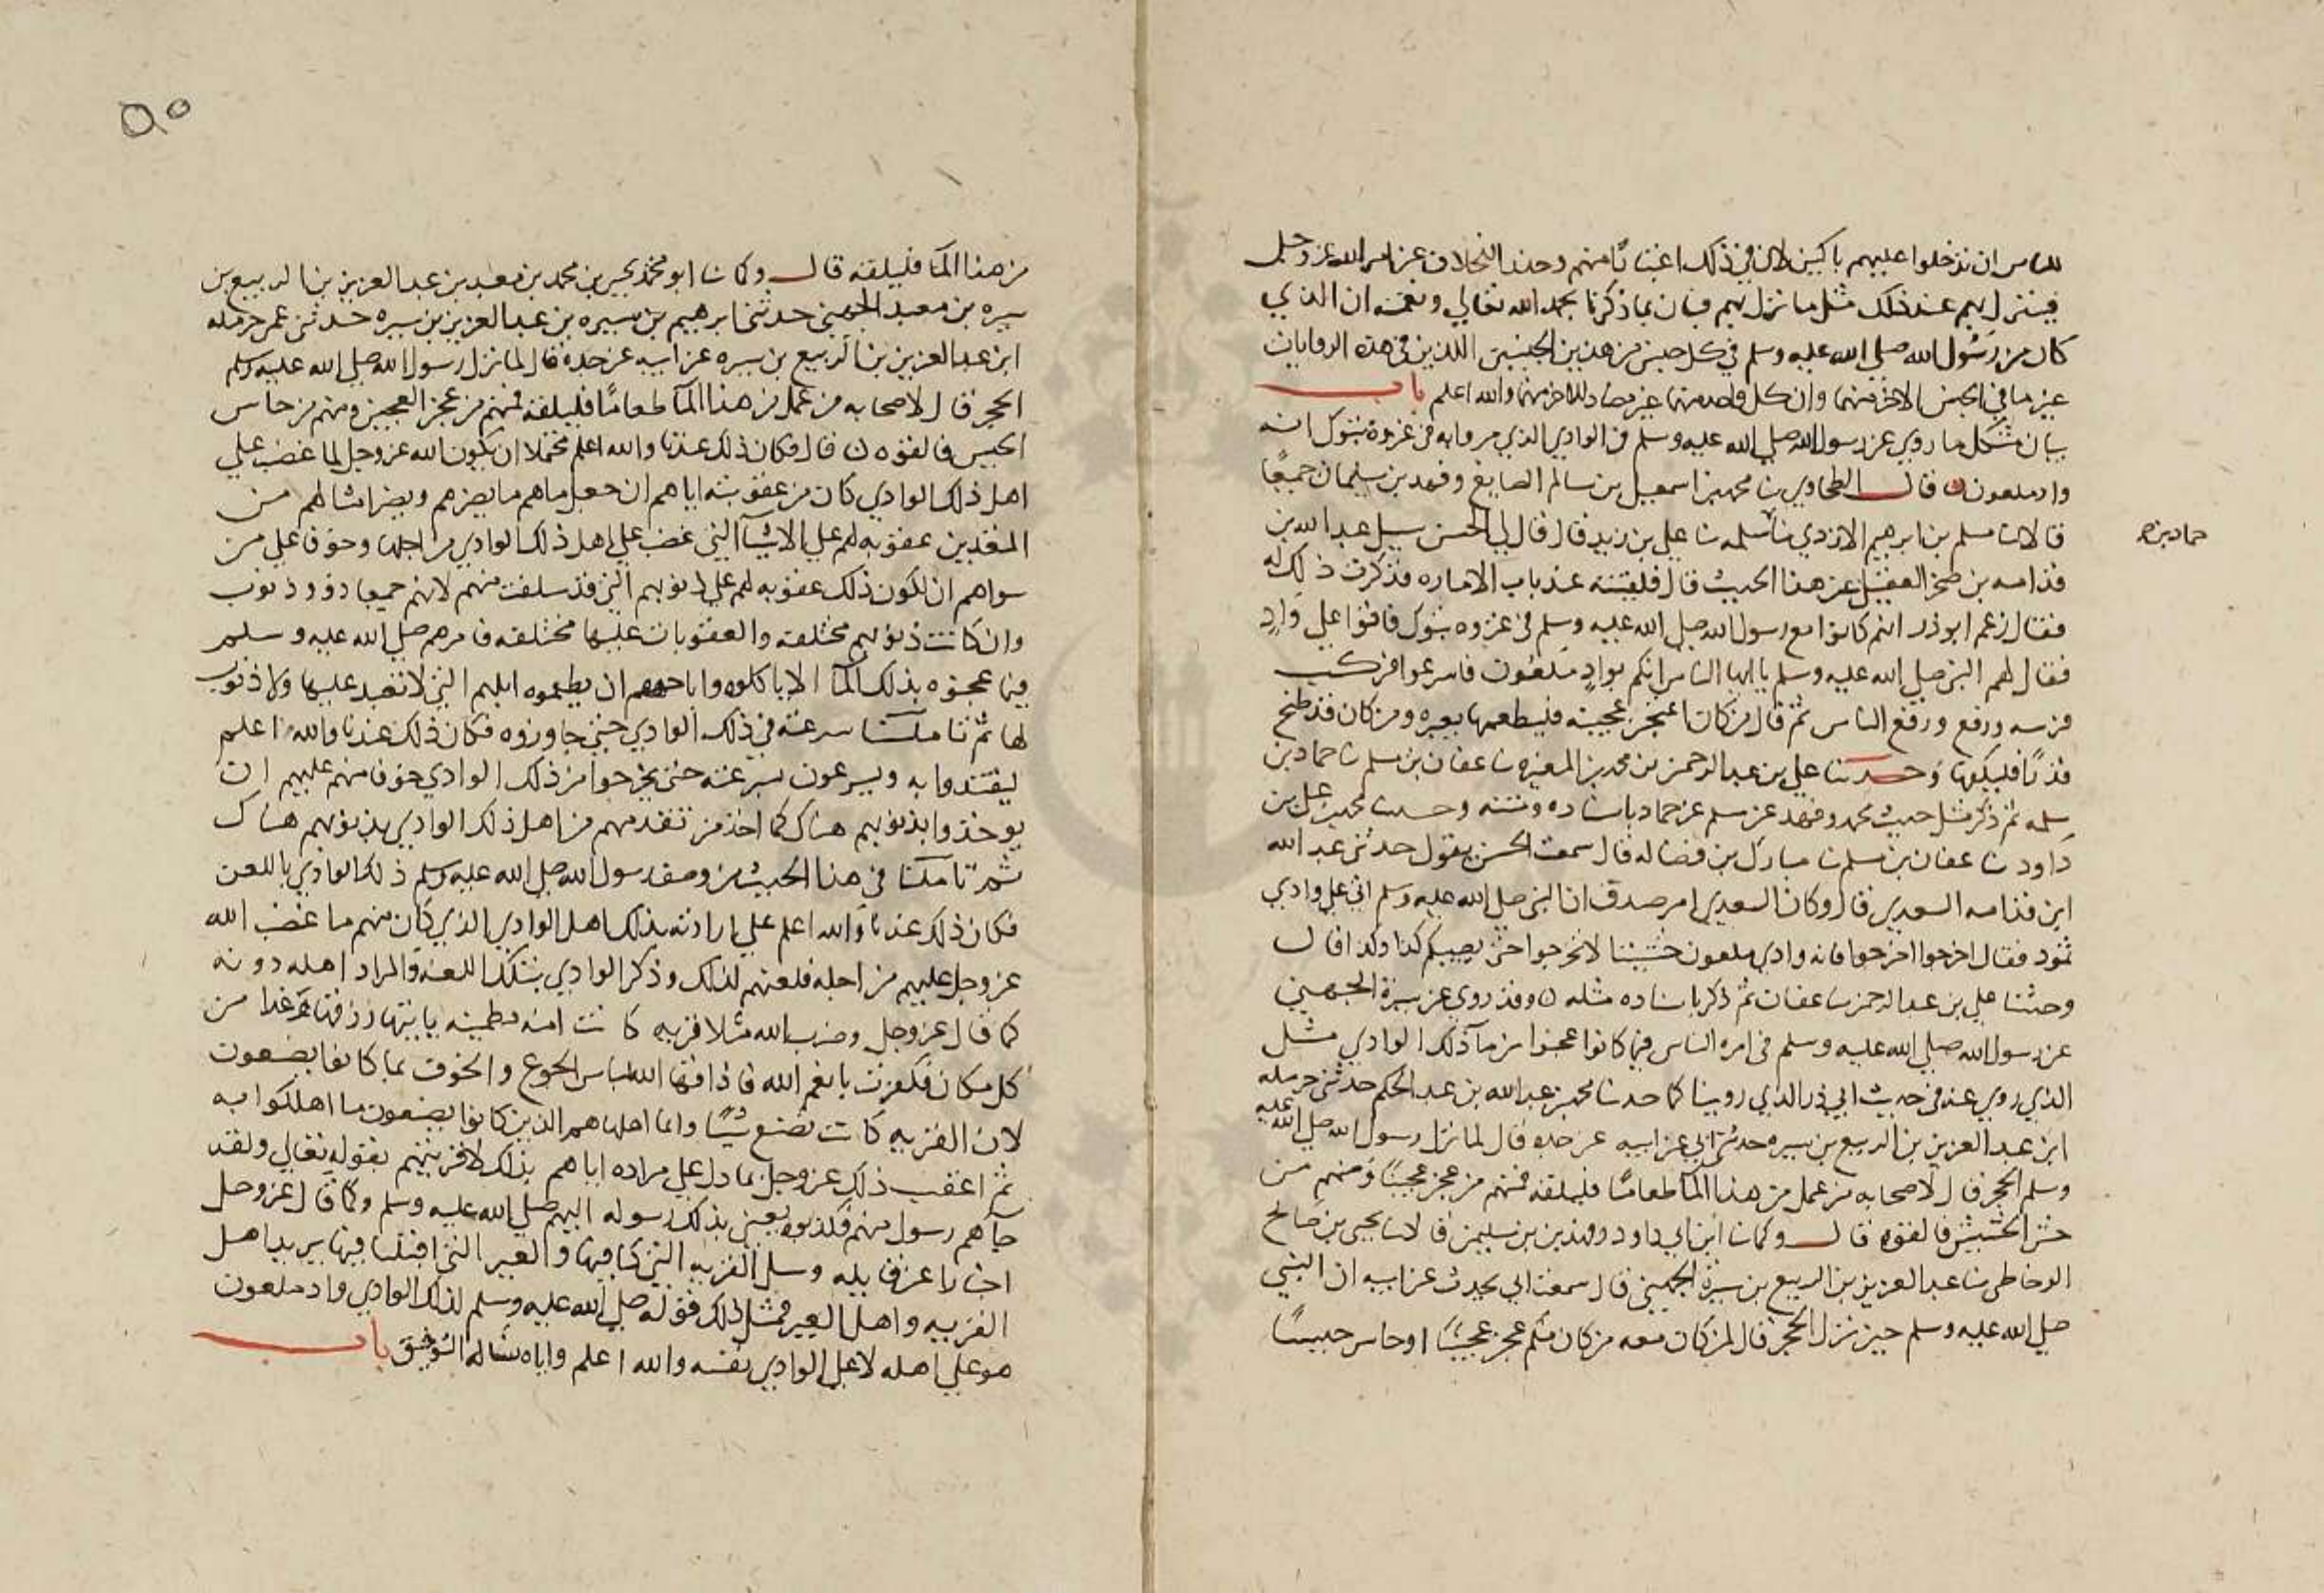 للناس ان تدخلوا عليهم باكين لان في ذلك اغتباثا منهم وحذرا لخلاف عن امر الله عز وجل
فينزل بهم عند ذلك مثل ما نزل بهم فبان بما ذكرنا بحمد الله تعالي ونعمته ان الذي
كان من رسول الله صلي الله عليه وسلم في كل جنس من هذين الجنسين اللذين في هذه الروايات
غير ما في الجنس الاخر منهما وان كل واحد منهما غير مضاد للاخر منهما والله اعلم باب
بيان مشكل ما روي عن رسول الله صلي الله عليه وسلم في الوادي الذي مر وا به في غزوة تبوك انه
واد ملعون قال الطحاوي نا محمد بن اسمعيل بن سالم الصايغ وفهد بن سليمان جميعا
قالا نا مسلم بن ابرهيم الازدي نا سلمه نا علي بن زيد قال قال لي الحسن سل عبد الله بن
حماد بن
قدامه بن صخر العقيلي عن هذا الحديث قال فلقيته عند باب الاماره فذكرت ذلك له
فقال زعم ابو ذر انهم كانوا مع رسول الله صلي الله عليه وسلم في غزوه تبوك فاتوا علي واد
فقال لهم النبي صلي الله عليه وسلم يا ايها الناس انكم بواد ملعون فاسرعوا فركب
فرسه ورفع ورفع الناس ثم قال من كان اعتجن عجينه فليطعمها بعيره ومن كان قد طبخ
قدرا فليكفها وحدثنا علي بن عبد الرحمن بن محمد بن المغيره نا عفان بن مسلم نا حماد بن
سلمه ثم ذكر مثل حديث محمد وفهد عن مسلم عن حماد باسناده ومتنه وحدثنا محمد بن علي بن
داود نا عفان بن مسلم نا مبارك بن فضاله قال سمعت الحسن يقول حدثني عبد الله
ابن قدامه السعدي قال وكان السعدي امر صدق ان النبي صلي الله عليه وسلم اتي علي وادي
ثمود فقال اخرجوا اخرجوا فانه وادي ملعون خشيتا لا تخرجوا حتى يصيبكم كذا وكذا قال
وحدثنا علي بن عبد الرحمن نا عفان ثم ذكر باسناده مثله وقد روي عن سبرة الجهني
عن رسول الله صلي الله عليه وسلم في امره الناس فيما كانوا عجنوا من ماء ذلك الوادي مثل
الذي روي عنه في حديث ابي ذر الذي روينا كما حدثنا محمد بن عبد الله بن عبد الحكم حدثني حرمله
ابن عبد العزيز بن الربيع بن سبره حدثني ابي عن ابيه عن جده قال لما نزل رسول الله صلي الله عليه
وسلم الحجر قال لاصحابه من عمل من هذا الماء طعاما فليلقه فمنهم من عجن عجينا ومنهم من
حش الحشيش فالقوه قال وكما نا ابن ابي داود وفهد بن سليمن قالا نا يحيى بن صالح
الوحاظي نا عبد العزيز بن الربيع بن سبرة الجهني قال سمعت ابي يحدث عن ابيه ان النبي
صلي الله عليه وسلم حين نزل الحجر قال لمن كان معه من كان منكم عجن عجينا او حاس حيسا
٥٠
من هذا الماء فليلقه قال وكما نا ابو محمد يحيى بن محمد بن معبد بن عبد العزيز بن الربيع بن
سبره بن معبد الجهني حدثني ابرهيم بن سبره بن عبد العزيز بن سبره حدثني عمي حرمله
ابن عبد العزيز بن الربيع بن سبره عن ابيه عن جده قال لما نزل رسول الله صلي الله عليه وسلم
الحجر قال لاصحابه من عمل من هذا الماء طعاما فليلقه فمنهم من عجن العجين ومنهم من حاس
الحيس فالقوه قال فكان ذلك عندنا والله اعلم محتملا ان يكون الله عز وجل لما غضب علي
اهل ذلك الوادي كان من عقوبته اياهم ان جعل ماهم ما يضرهم ويضر امثالهم من
المعذبين عقوبه لهم علي الاشيا التي غضب علي اهل ذلك الوادي من اجلها وخوفا علي من
سواهم ان يكون ذلك عقوبه لهم علي ذنوبهم التي قد سلفت منهم لانهم جميعا ذوو ذنوب
وان كانت ذنوبهم مختلفه والعقوبات عليها مختلفه فامرهم صلي الله عليه وسلم
فيما عجنوه بذلك الماء الا ياكلوه واباحهم ان يطعموه ابلهم التي لا تعبد عليها ولا ذنوب
لها ثم تاملنا سرعته في ذلك الوادي حتي جاوزوه فكان ذلك عندنا والله اعلم
ليقتدوا به ويسرعون سرعته حتى يخرجوا من ذلك الوادي خوفا منهم عليهم ان
يوخذوا بذنوبهم هناك كما اخذ من تقدمهم من اهل ذلك الوادي بذنوبهم هناك
ثم تاملنا في هذا الحديث من وصف رسول الله صلي الله عليه وسلم ذلك الوادي باللعن
فكان ذلك عندنا والله اعلم علي ارادته بذلك اهل الوادي الذي كان منهم ما غضب الله
عز وجل عليهم من اجله فلعنهم لذلك وذكر الوادي بتلك اللعنه والمراد اهله دونه
كما قال عز وجل وضرب الله مثلا قريه كانت امنه مطمينه ياتيها رزقها رغدا من
كل مكان فكفرت بانعم الله فاذاقها الله لباس الجوع والخوف بما كانوا يصنعون
لان القريه كانت تصنع شيا وانما اهلها هم الذين كانوا يصنعون ما اهلكوا به
ثم اعقب ذلك عز وجل بما دل علي مراده اياهم بذلك لا قريتهم بقوله تعالي ولقد
جاهم رسول منهم فكذبوه يعني بذلك رسوله اليهم صلي الله عليه وسلم وكما قال عز وجل
اخبارا عن قايله وسل القريه التي كنا فيها والعير التي اقبلنا فيها يريد اهل
القريه واهل العير فمثل ذلك قوله صلي الله عليه وسلم لذلك الوادي واد ملعون
هو علي اهله لا علي الوادي نفسه والله اعلم واياه نساله التوفيق باب